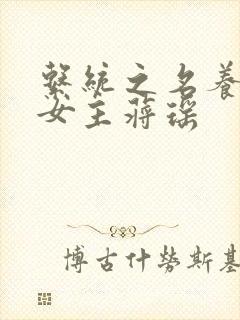 繫統之名養
女主蔣瑤
博古什勞斯基